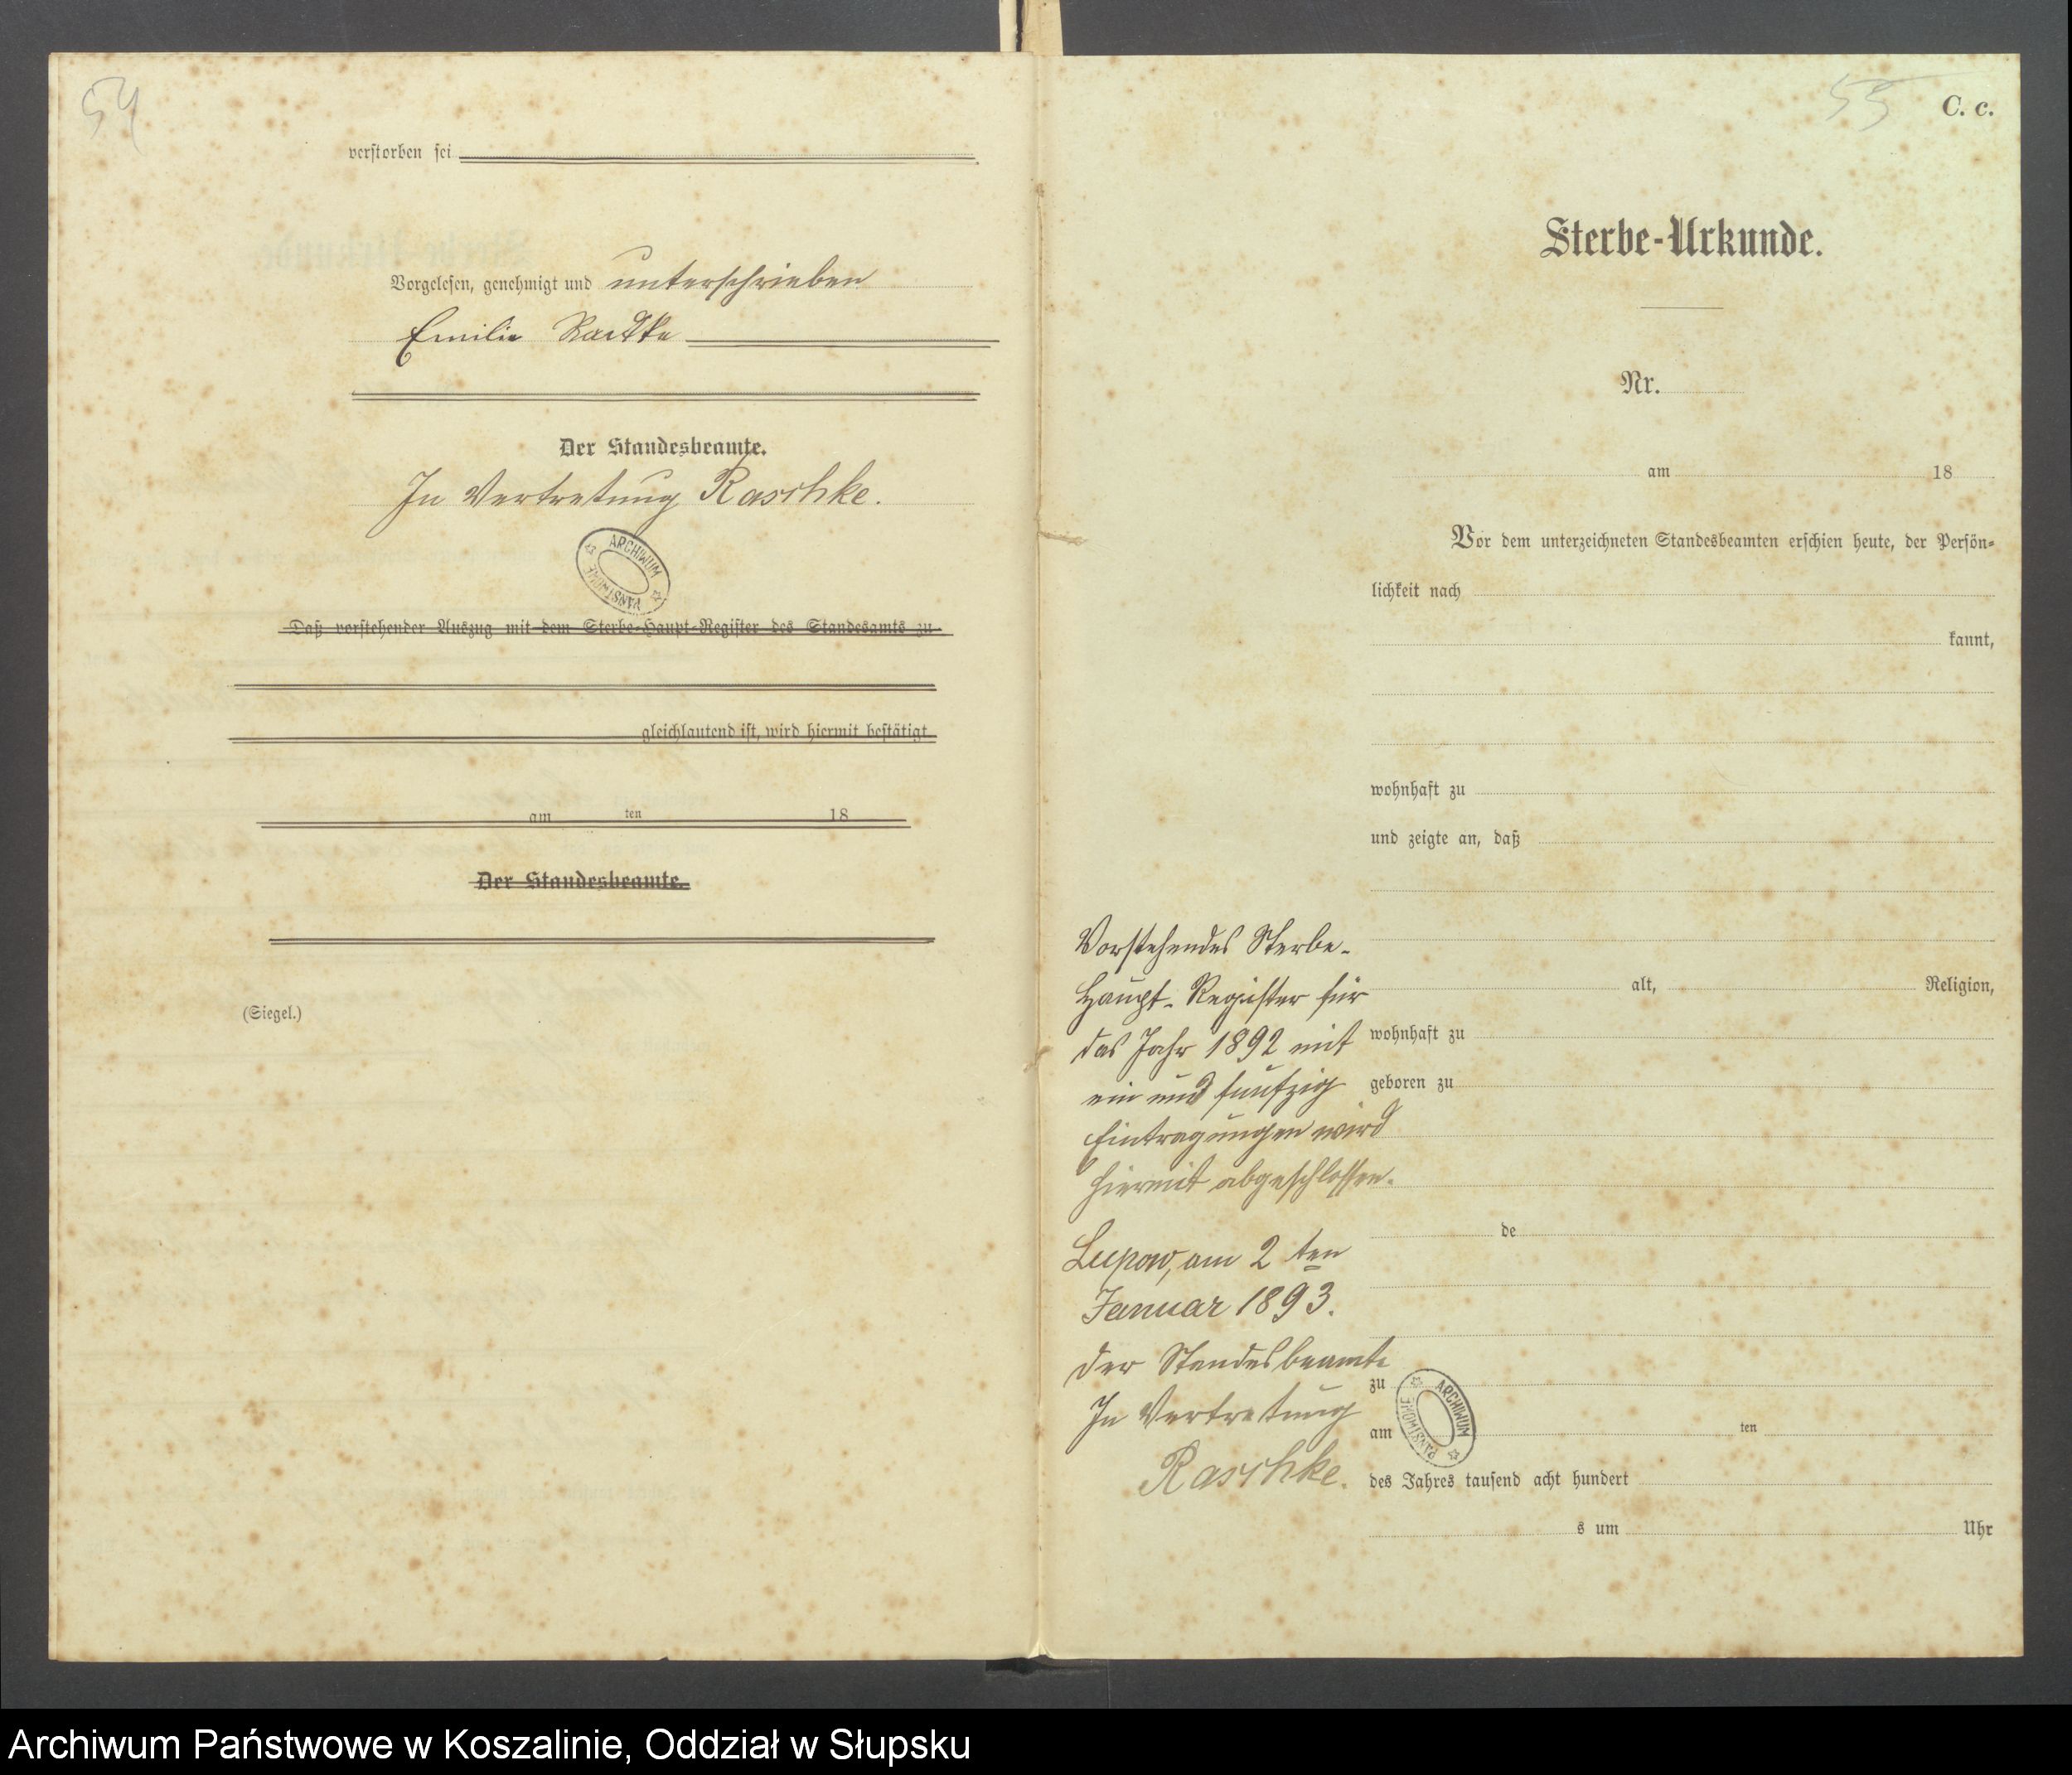 54
verstorben sei
Vorgelesen, genehmigt und unterschrieben
Emilie Radtke
Der Standesbeamte.
In Vertretung Raschke.
ARCHIWUM PAŃSTWOWE
Daß vorstehender Auszug mit dem Sterbe-Haupt-Register des Standesamts zu
gleichlautend ist, wird hiermit bestätigt
am ten 18
Der Standesbeamte.
(Siegel.)
55
C. c.
Sterbe-Urkunde.
Nr.
am 18
Vor dem unterzeichneten Standesbeamten erschien heute, der Persön-
lichkeit nach
kannt,
wohnhaft zu
und zeigte an, daß
alt, Religion,
wohnhaft zu
geboren zu
de
zu
am ten
des Jahres tausend acht hundert
s um Uhr
Vorstehendes Sterbe-
Haupt-Register für
das Jahr 1892 mit
ein und fünfzig
Eintragungen wird
hiermit abgeschlossen.
Lupow, am 2 ten
Januar 1893.
Der Standesbeamte
In Vertretung
Raschke.
ARCHIWUM PAŃSTWOWE
Archiwum Państwowe w Koszalinie, Oddział w Słupsku